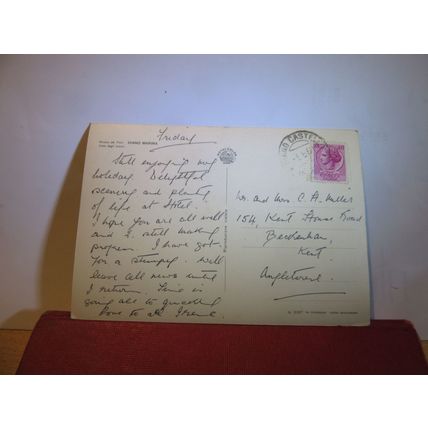 Friday
Still enjoying my
holiday. Delightful
scenery and plenty
of life at Hotel.
I hope you are all well
and I. still making
progress I have got
for a stamp. Will
leave all news until
I return. Time is
going all to quickly
Love to all
Mr. and Mrs C. A. Miller
154, Kent House Road
Beckenham,
Kent.
Angleterre.